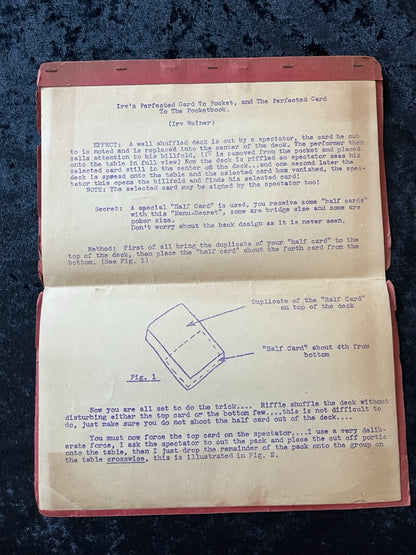 Irv's Perfected Card To Pocket, and The Perfected Card
To The Pocketbook.
(Irv Weiner)
EFFECT: A well shuffled deck is cut by a spectator, the card he cut
to is noted and is replaced into the center of the deck. The performer then
calls attention to his billfold, (It is removed from the pocket and placed
onto the table in full view) Now the deck is riffled so spectator sees his
selected card still in the center of the deck...and one second later the
deck is spread onto the table and the selected card has vanished, the spec-
tator this opens the billfold and finds his selected card!
NOTE: The selected card may be signed by the spectator too!
Secret: A special "Half Card" is used, you receive some "half cards"
with this "Manu-Secret", some are bridge size and some are
poker size.
Don't worry about the back design as it is never seen.
Method: First of all bring the duplicate of your "half card" to the
top of the deck, then place the "half card" about the forth card from the
bottom. (See Fig. 1)
Duplicate of the "Half Card"
on top of the deck
"Half Card" about 4th from
bottom
Fig. 1
Now you are all set to do the trick.... Riffle shuffle the deck without
disturbing either the top card or the bottom few....this is not difficult to
do, just make sure you do not shoot the half card out of the deck....
You must now force the top card on the spectator....I use a very delib-
erate force, I ask the spectator to cut the pack and place the cut off portic
onto the table, then I just drop the remainder of the pack onto the group on
the table crosswise, this is illustrated in Fig. 2.